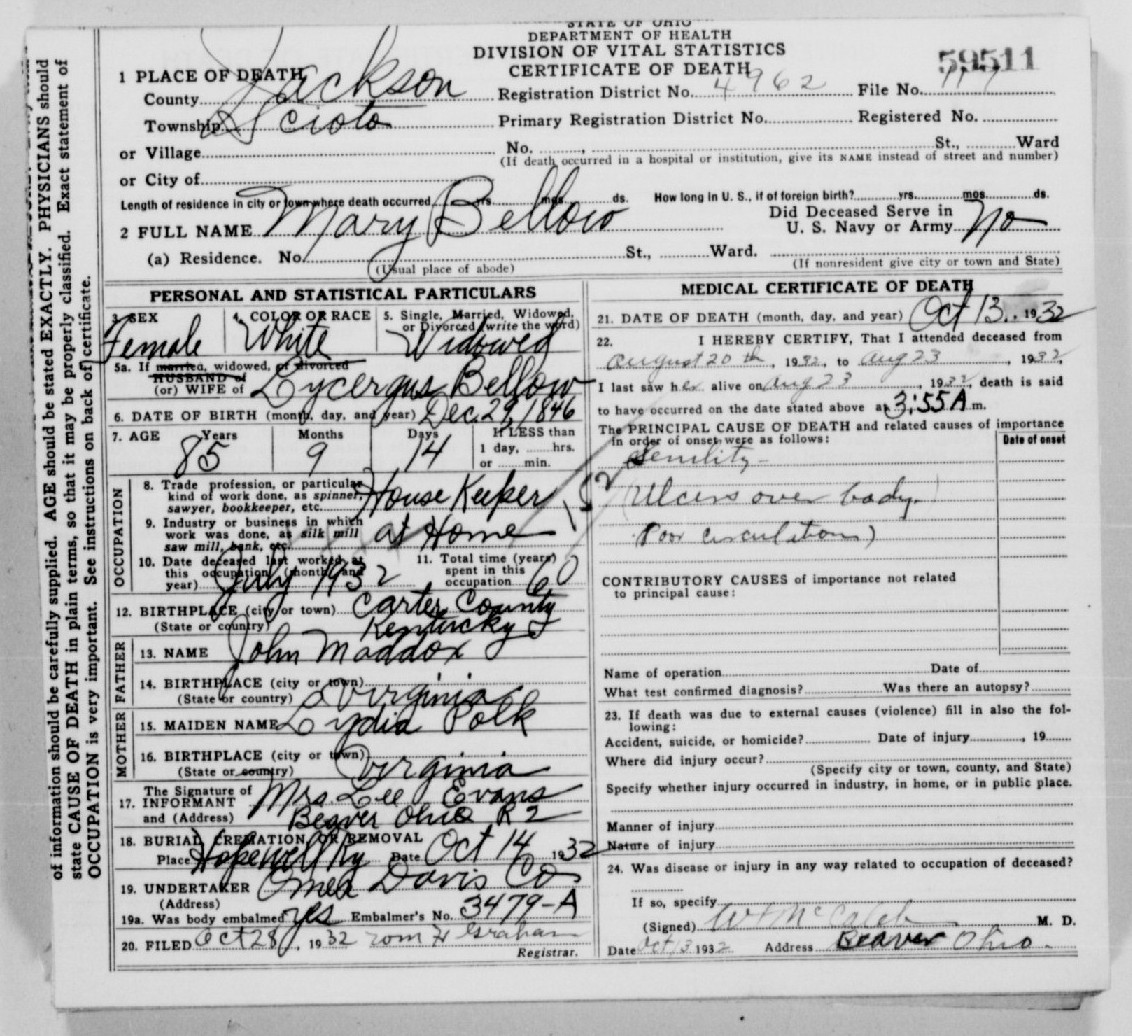 STATE OF OHIO
DEPARTMENT OF HEALTH
DIVISION OF VITAL STATISTICS
CERTIFICATE OF DEATH
59511
1 PLACE OF DEATH
County Jackson Registration District No. 4962 File No. 117
Township Scioto Primary Registration District No. Registered No.
or Village No. , St., Ward
(If death occurred in a hospital or institution, give its NAME instead of street and number)
or City of
Length of residence in city or town where death occurred yrs. mos. ds. How long in U. S., if of foreign birth? yrs. mos. ds.
2 FULL NAME Mary Bellow Did Deceased Serve in U. S. Navy or Army No
(a) Residence. No. St., Ward.
(Usual place of abode) (If nonresident give city or town and State)
PERSONAL AND STATISTICAL PARTICULARS
3. SEX Female 4. COLOR OR RACE White 5. Single, Married, Widowed, or Divorced (write the word) Widowed
5a. If married, widowed, or divorced
HUSBAND of
(or) WIFE of Lycergus Bellow
6. DATE OF BIRTH (month, day, and year) Dec 29, 1846
7. AGE Years 85 Months 9 Days 14 If LESS than 1 day, hrs. or min.
OCCUPATION
8. Trade profession, or particular kind of work done, as spinner, sawyer, bookkeeper, etc. House Keeper
9. Industry or business in which work was done, as silk mill saw mill, bank, etc. at Home
10. Date deceased last worked at this occupation (month and year) July 1932 11. Total time (years) spent in this occupation 60
152
12. BIRTHPLACE (city or town) Carter County
(State or country) Kentucky
FATHER
13. NAME John Maddox
14. BIRTHPLACE (city or town)
(State or country) Virginia
MOTHER
15. MAIDEN NAME Lydia Polk
16. BIRTHPLACE (city or town)
(State or country) Virginia
17. The Signature of INFORMANT Mrs. Lee Evans
and (Address) Beaver Ohio R 2
18. BURIAL, CREMATION, OR REMOVAL
Place Hopewell Ky Date Oct 14 1932
19. UNDERTAKER Davis Co
(Address)
19a. Was body embalmed yes Embalmer's No. 3479-A
20. FILED Oct 28, 1932 Graham
Registrar.
MEDICAL CERTIFICATE OF DEATH
21. DATE OF DEATH (month, day, and year) Oct 13, 1932
22. I HEREBY CERTIFY, That I attended deceased from
August 20th, 1932, to Aug 23, 1932,
I last saw her alive on Aug 23, 1932, death is said
to have occurred on the date stated above at 3:55 A m.
The PRINCIPAL CAUSE OF DEATH and related causes of importance
in order of onset were as follows: Date of onset
Senility
(Ulcers over body.
Poor circulation)
CONTRIBUTORY CAUSES of importance not related
to principal cause:
Name of operation Date of
What test confirmed diagnosis? Was there an autopsy?
23. If death was due to external causes (violence) fill in also the following:
Accident, suicide, or homicide? Date of injury , 19
Where did injury occur?
(Specify city or town, county, and State)
Specify whether injury occurred in industry, in home, or in public place.
Manner of injury
Nature of injury
24. Was disease or injury in any way related to occupation of deceased?
If so, specify
(Signed) W McCaleb M. D.
Date Oct 13 1932 Address Beaver Ohio.
of information should be carefully supplied. AGE should be stated EXACTLY. PHYSICIANS should
state CAUSE OF DEATH in plain terms, so that it may be properly classified. Exact statement of
OCCUPATION is very important. See instructions on back of certificate.